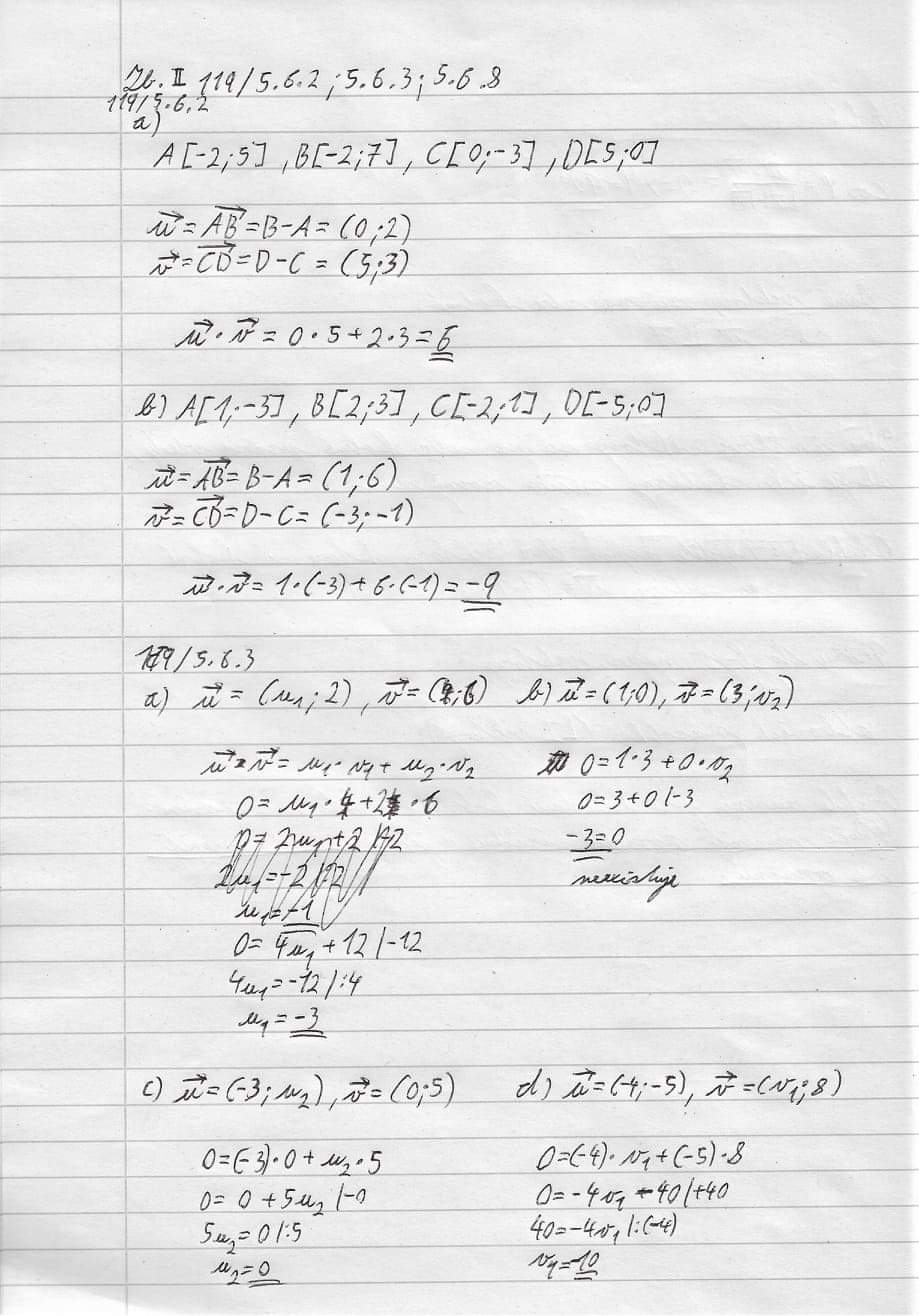 Zb. II 119/5.6.2 ; 5.6.3 ; 5.6.8
119/5.6.2
a)
A[-2;5] , B[-2;7] , C[0;-3] , D[5;0]
u⃗ = AB⃗ = B-A = (0;2)
v⃗ = CD⃗ = D-C = (5;3)
u⃗ · v⃗ = 0·5+2·3 = 6
b) A[1;-3] , B[2;3] , C[-2;1] , D[-5;0]
u⃗ = AB⃗ = B-A = (1;6)
v⃗ = CD⃗ = D-C = (-3;-1)
u⃗ · v⃗ = 1·(-3)+6·(-1) = -9
119/5.6.3
a) u⃗ = (u₁;2) , v⃗ = (4;6)
u⃗ · v⃗ = u₁·v₁ + u₂·v₂
0 = u₁·4 + 2·6
0 = 2u₁+2 /-2
2u₁ = -2 /:2
u₁ = -1
0 = 4u₁ + 12 /-12
4u₁ = -12 /:4
u₁ = -3
b) u⃗ = (1;0) , v⃗ = (3;v₂)
0 = 1·3 + 0·v₂
0 = 3+0 /-3
-3 = 0
neexistuje
c) u⃗ = (-3;u₂) , v⃗ = (0;5)
0 = (-3)·0 + u₂·5
0 = 0 + 5u₂ /-0
5u₂ = 0 /:5
u₂ = 0
d) u⃗ = (-4;-5) , v⃗ = (v₁;8)
0 = (-4)·v₁ + (-5)·8
0 = -4v₁ - 40 /+40
40 = -4v₁ /:(-4)
v₁ = -10